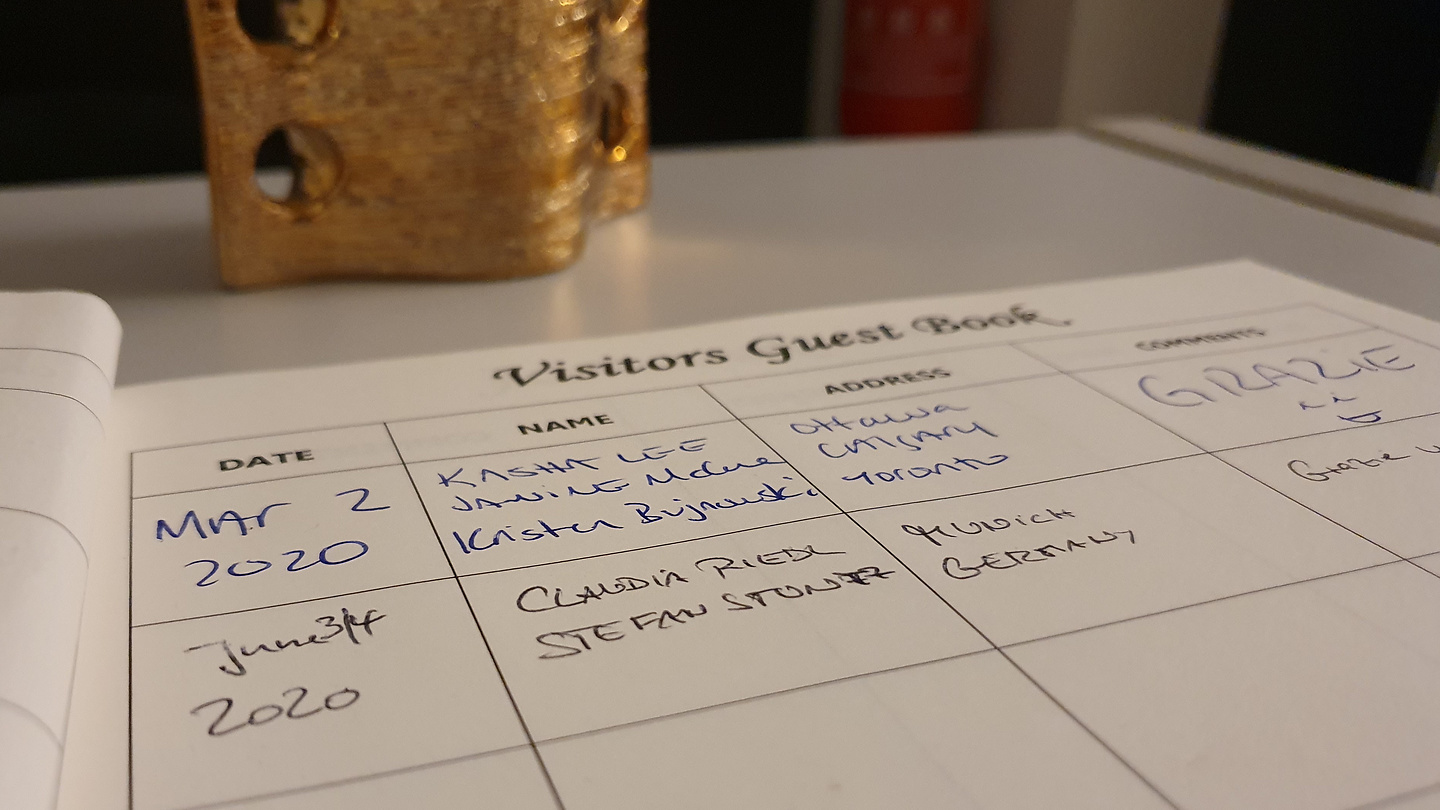 Visitors Guest Book
DATE NAME ADDRESS COMMENTS
MAr 2
2020
KASHA LEE
JANINE McCue
Kristen Bujnowski
Ottawa
CAlgARy
Toronto
GRAZIE
June 3/4
2020
CLAUDIA RIEDL
STEFAN
MUNICH
GERMANY
Grazie